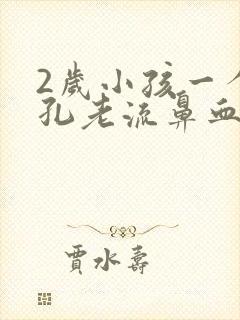 2歲小孩一
孔老流鼻血
賈水壽